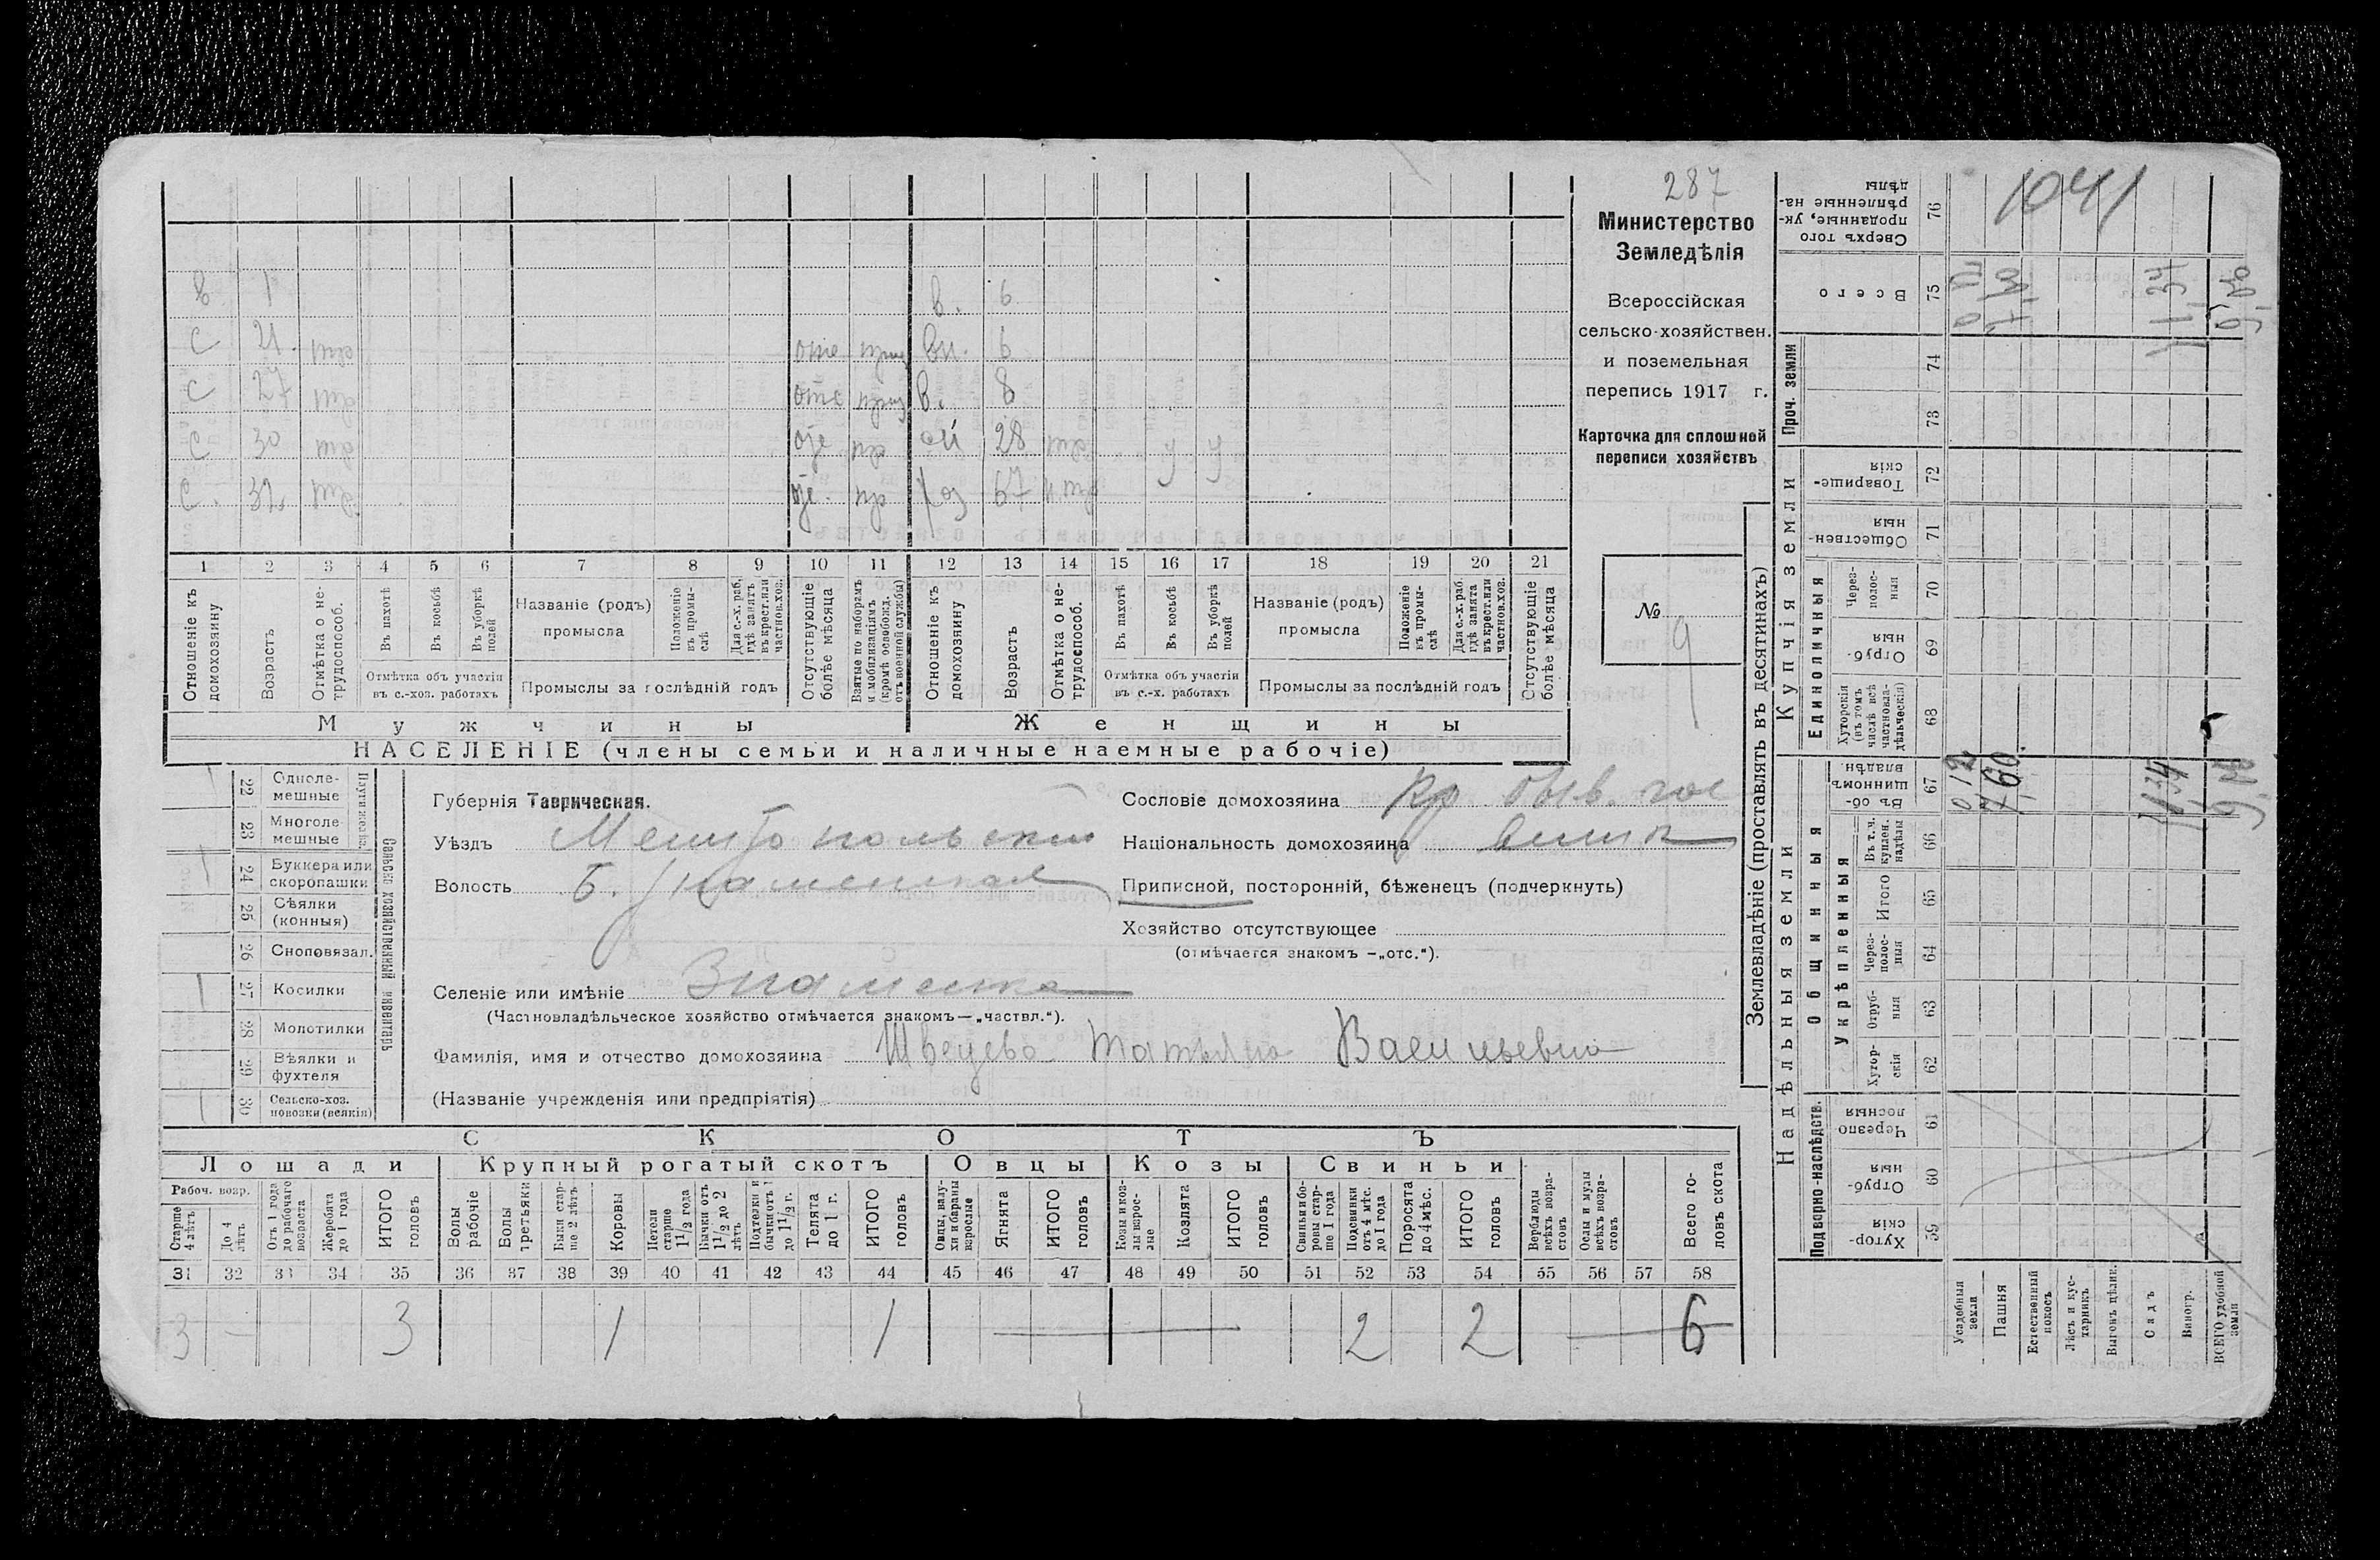 287
Министерство
Земледѣлія
Всероссійская
сельско-хозяйствен.
и поземельная
перепись 1917 г.
Карточка для сплошной
переписи хозяйствъ
№ 9
в 1 в. 6
с 21. отс вн. 6
с 27 отс в. 8
с 30 пр 28 у у
с. 32 пр хоз 67
1 2 3 4 5 6 7 8 9 10 11 12 13 14 15 16 17 18 19 20 21
Отношеніе къ домохозяину
Возрастъ
Отмѣтка о не-трудоспособ.
Въ пахотѣ
Въ косьбѣ
Въ уборкѣ полей
Отмѣтка объ участіи въ с.-хоз. работахъ
Названіе (родъ) промысла
Положеніе въ промы-слѣ
Для с.-х. раб. гдѣ занятъ въ крест. или частнов. хоз.
Промыслы за послѣдній годъ
Отсутствующіе болѣе мѣсяца
Взятые по наборамъ и мобилизаціямъ (кромѣ освобожд. отъ военной службы)
Отношеніе къ домохозяину
Возрастъ
Отмѣтка о не-трудоспособ.
Въ пахотѣ
Въ косьбѣ
Въ уборкѣ полей
Отмѣтка объ участіи въ с.-х. работахъ
Названіе (родъ) промысла
Положеніе въ промы-слѣ
Для с.-х. раб. гдѣ занята въ крест. или частнов. хоз.
Промыслы за послѣдній годъ
Отсутствующіе болѣе мѣсяца
Мужчины Женщины
НАСЕЛЕНІЕ (члены семьи и наличные наемные рабочіе)
Сельско хозяйственный инвентарь
22 Одноле-мешные
23 Многоле-мешные
24 Буккера или скоропашки
25 Сѣялки (конныя)
26 Сноповязал.
27 Косилки
28 Молотилки
29 Вѣялки и фухтеля
30 Сельско-хоз. повозки (всякія)
Губернія Таврическая.
Уѣздъ Мелитопольский
Волость Б. Знаменская
Селеніе или имѣніе Знаменка
(Частновладѣльческое хозяйство отмѣчается знакомъ—„частвл.“).
Сословіе домохозяина кр. быв. гос
Національность домохозяина велик
Приписной, посторонній, бѣженецъ (подчеркнуть)
Хозяйство отсутствующее
(отмѣчается знакомъ —„отс.“).
Фамилія, имя и отчество домохозяина Швецева Татьяна Васильевна
(Названіе учрежденія или предпріятія)
СКОТЪ
Лошади Крупный рогатый скотъ Овцы Козы Свиньи
Рабоч. возр.
Старше 4 лѣтъ
До 4 лѣтъ
Отъ 1 года до рабочаго возраста
Жеребята до 1 года
ИТОГО головъ
Волы рабочіе
Волы третьяки
Быки стар-ше 2 лѣтъ
Коровы
Нетели старше 1 1/2 года
Бычки отъ 1 1/2 до 2 лѣтъ
Подтелки и бычки отъ 1 до 1 1/2 г.
Телята до 1 г.
ИТОГО головъ
Овцы, валу-хи и бараны взрослые
Ягнята
ИТОГО головъ
Козы и коз-лы взрос-лые
Козлята
ИТОГО головъ
Свиньи и бо-ровы стар-ше 1 года
Подсвинки отъ 4 мѣс. до 1 года
Поросята до 4 мѣс.
ИТОГО головъ
Верблюды всѣхъ возра-стовъ
Ослы и мулы всѣхъ возра-стовъ
Всего го-ловъ скота
31 32 33 34 35 36 37 38 39 40 41 42 43 44 45 46 47 48 49 50 51 52 53 54 55 56 57 58
3 – 3 1 1 2 2 6
Землевладѣніе (проставлять въ десятинахъ)
Надѣльныя земли
Купчія земли
Проч. земли
Подворно-наслѣдств.
Общинныя
Укрѣпленныя
Единоличныя
1041
Сверхъ того проданные, ук-рѣпленные на-дѣлы 76
Всего 75
74
73
Товарище-скія 72
Обществен-ныя 71
Через-полос-ныя 70
Отруб-ныя 69
Хуторскія (въ томъ числѣ всѣ частновла-дѣльческія) 68
Въ об-щинномъ владѣн. 67
Въ т. ч. куплен. надѣлы 66
Итого 65
Через-полос-ныя 64
Отруб-ныя 63
Хутор-скія 62
Черезпо-лосныя 61
Отруб-ныя 60
Хутор-скія 59
0 12
7,60.
1,34
Усадебныя земли
Пашня
Естественный покосъ
Лѣсъ и кус-тарникъ
Выгонъ цѣлик.
Садъ
Виногр.
ВСЕГО удобной земли